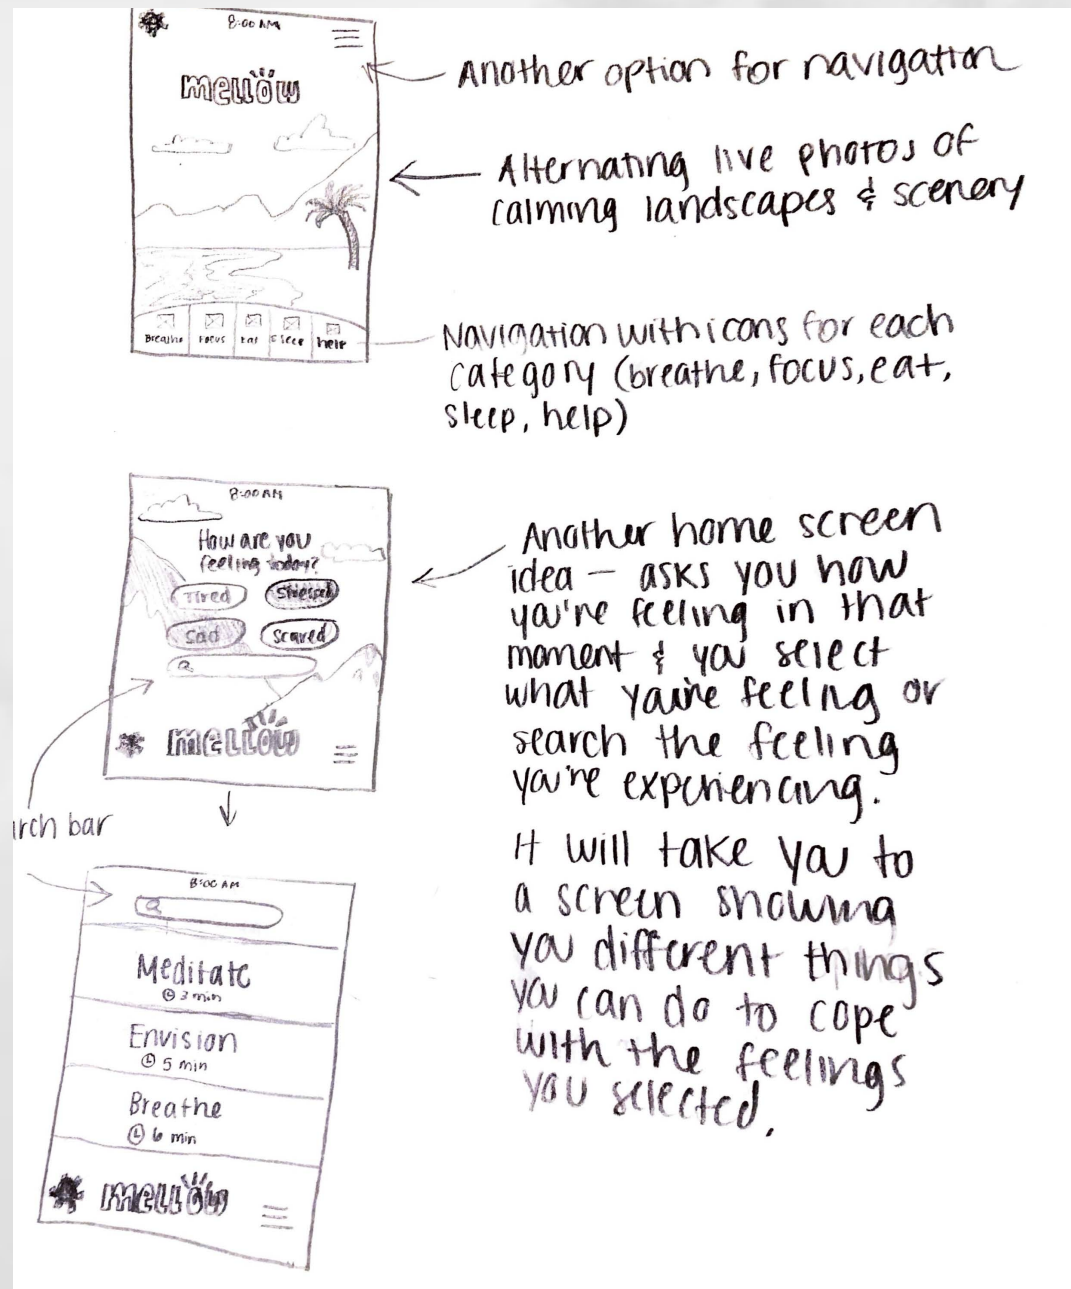 8:00 AM
mellow
Another option for navigation
Alternating live photos of
calming landscapes & scenery
Breathe Focus Eat Sleep help
Navigation with icons for each
category (breathe, focus, eat,
sleep, help)
8:00 AM
How are you
feeling today?
Tired Stressed
Sad Scared
mellow
Another home screen
idea — asks you how
you're feeling in that
moment & you select
what you're feeling or
search the feeling
you're experiencing.
It will take you to
a screen showing
you different things
you can do to cope
with the feelings
you selected.
rch bar
8:00 AM
Meditate
3 min
Envision
5 min
Breathe
6 min
mellow